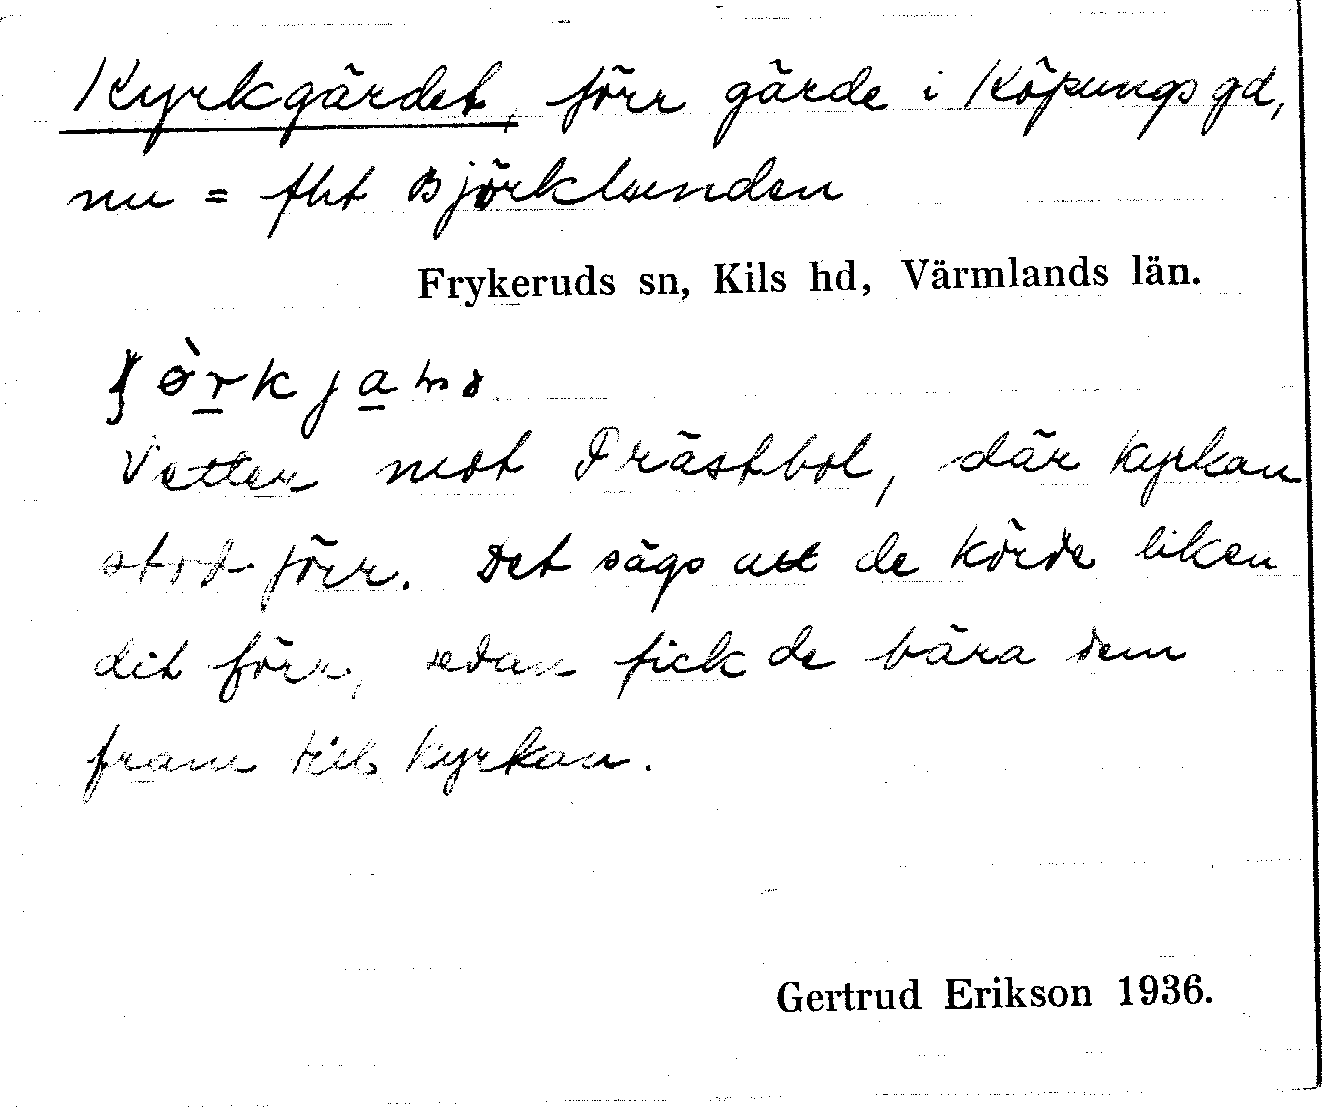 Kyrkgärdet, förr gärde i Köpungs gd,
nu = fht Björklunden
Frykeruds sn, Kils hd, Värmlands län.
Vetter mot Prästbol, där kyrkan
stod förr. Det sägs att de körde liken
dit förr, sedan fick de bära dem
fram till kyrkan.
Gertrud Erikson 1936.